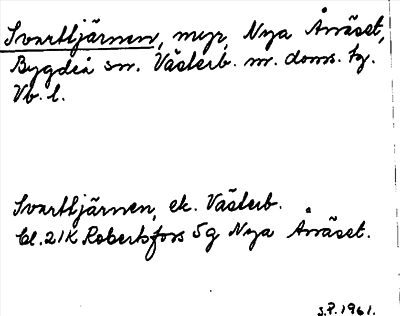 Svarttjärnen, myr, Nya Ånäset,
Bygdeå sn. Västerb. n. doms. tg.
Vb. l.
Svarttjärnen, ek. Västerb.
bl. 21K Robertsfors 5g Nya Ånäset.
S.P. 1961.